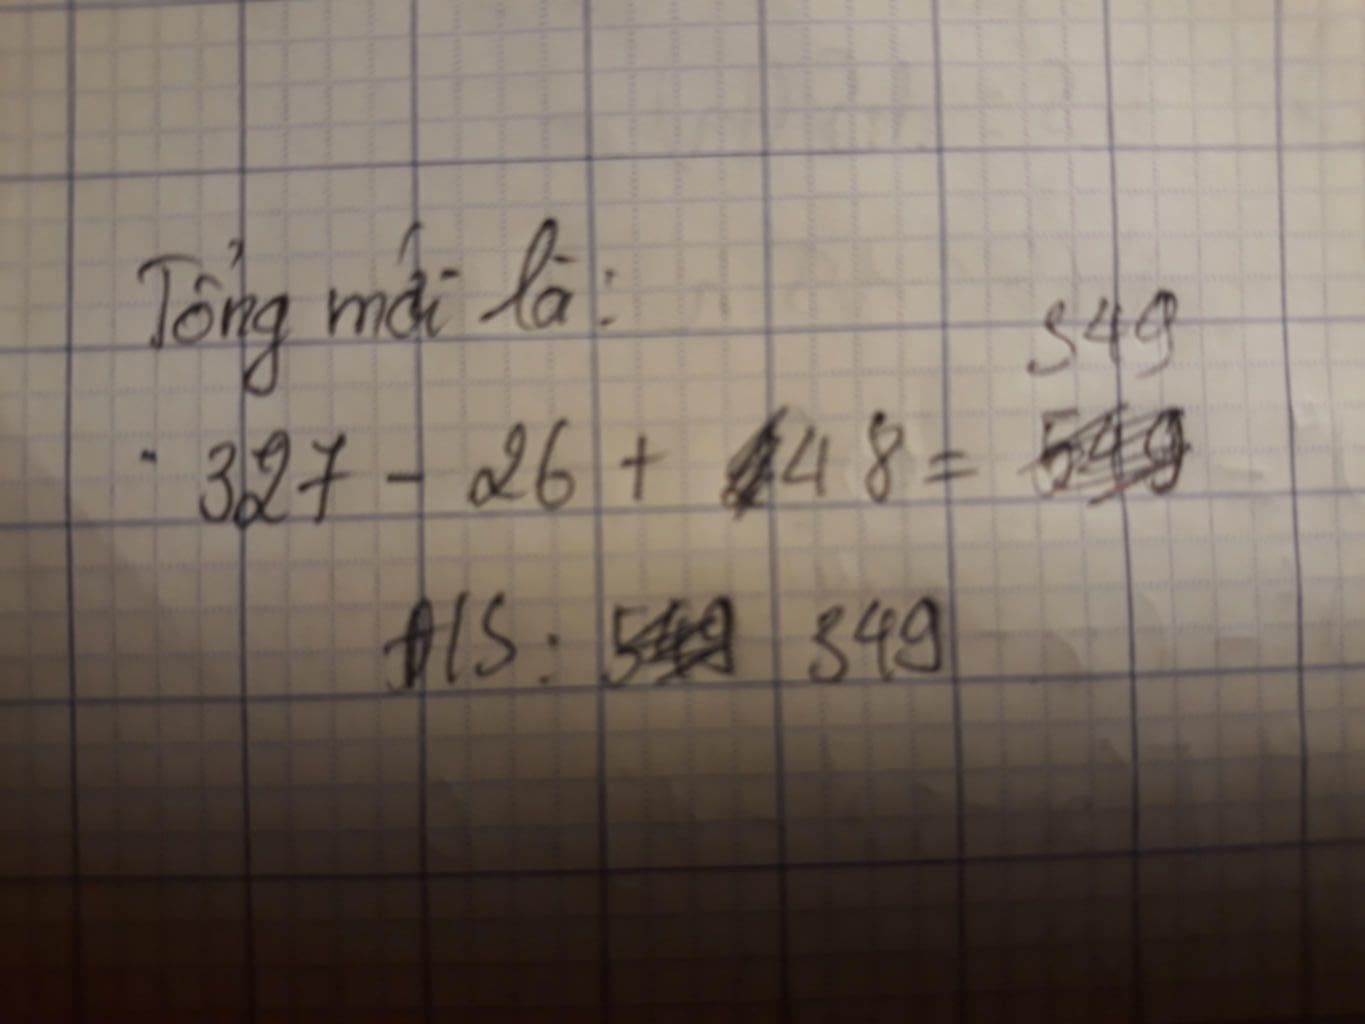 Tổng mới là:
349
327 - 26 + 48 =
Đ/S: 349